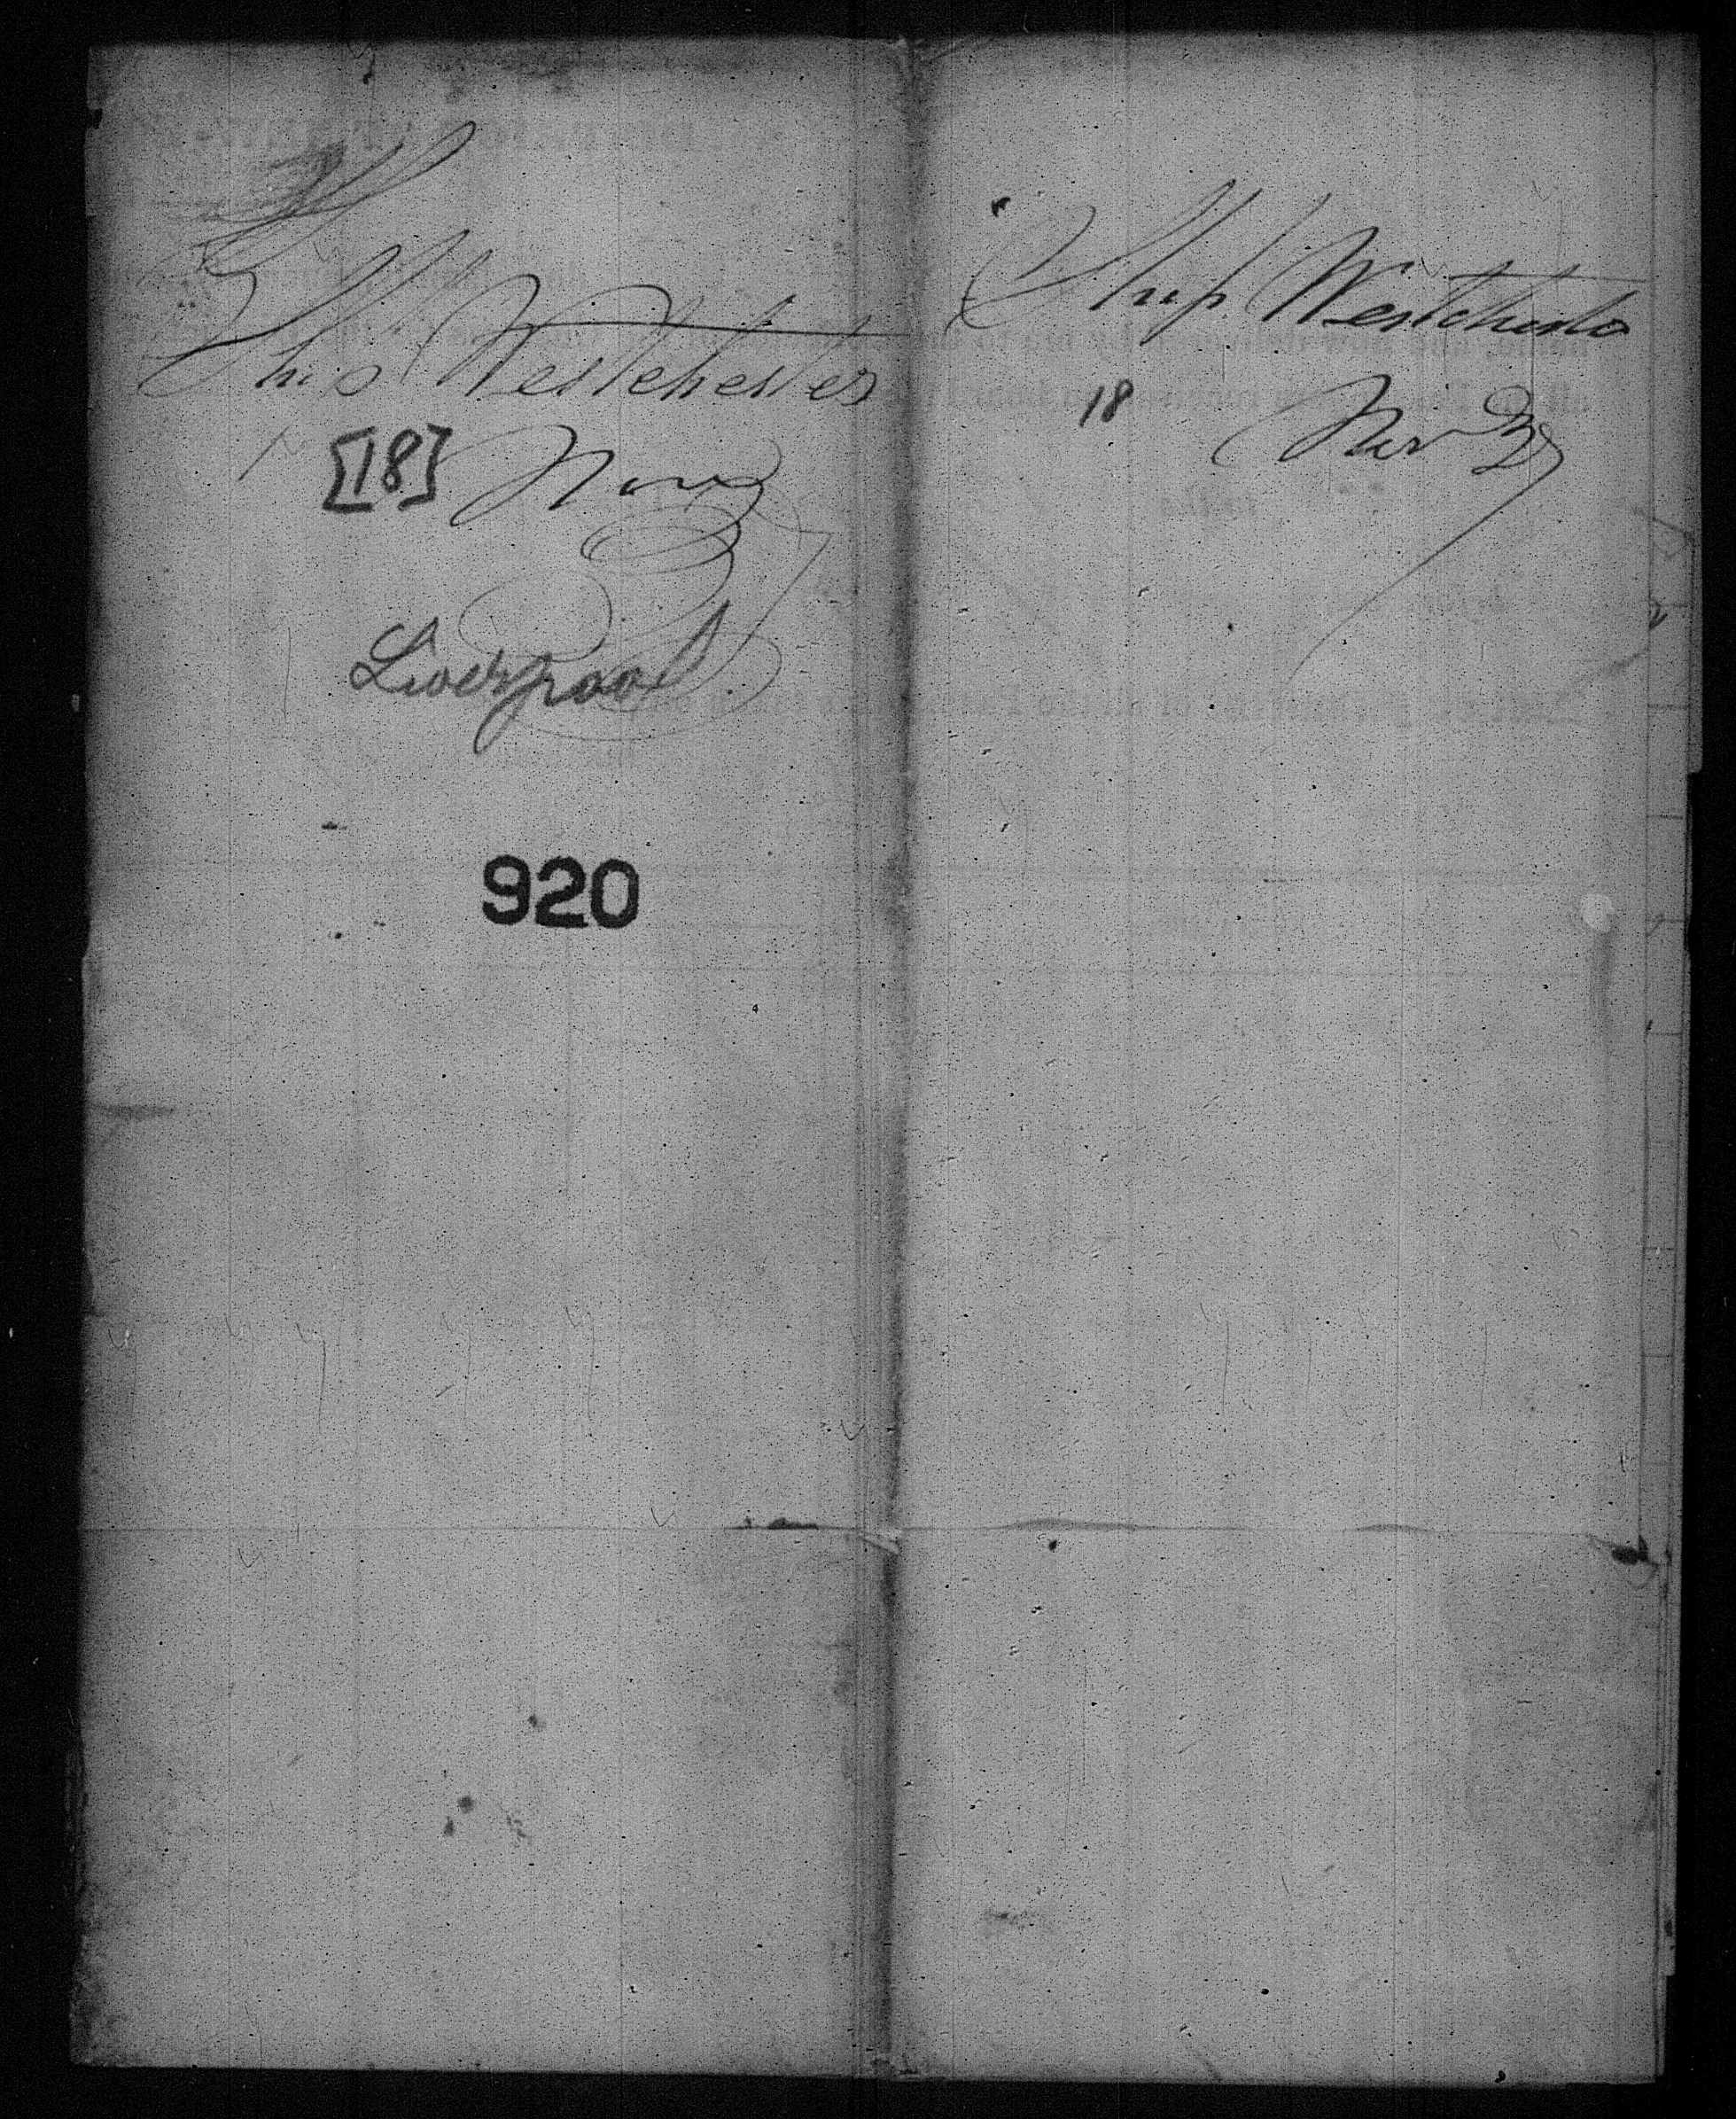 Ship Westchester
[18] Nov 3
Liverpool
920
Ship Westchester
18 Nov 3